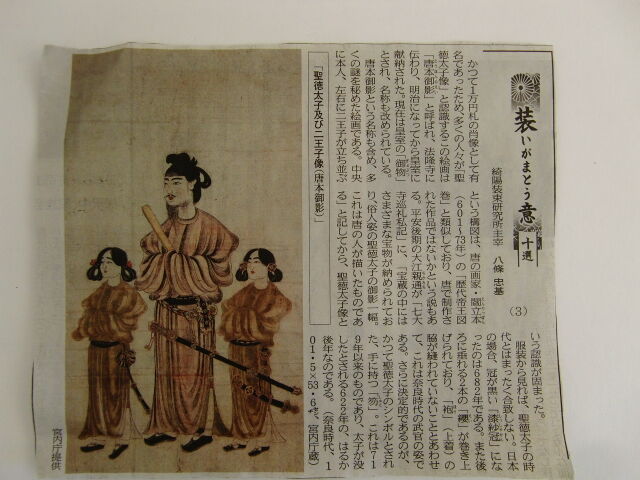 装いがまとう意 十選
(3)
綺陽装束研究所主宰 八條 忠基
かつて1万円札の肖像として有
名であったため、多くの人々が「聖
徳太子像」と認識するこの絵画は
「唐本御影」と呼ばれ、法隆寺に
伝わり、明治になってから皇室に
献納された。現在は皇室の「御物」
とされ、名称も改められている。
唐本御影という名称も含め、多
くの謎を秘めた絵画である。中央
に本人、左右に二王子が立ち並ぶ
「聖徳太子及び二王子像(唐本御影)」
という構図は、唐の画家・閻立本
(601〜73年)の「歴代帝王図
巻」と類似しており、唐で制作さ
れた作品ではないかという説もあ
る。平安後期の大江親通が「七大
寺巡礼私記」に、「宝蔵の中には
さまざまな宝物が納められてお
り、俗人姿の聖徳太子の御影一幅。
これは唐の人が描いたものであ
る」と記してから、聖徳太子像と
いう認識が固まった。
服装から見れば、聖徳太子の時
代とはまったく合致しない。日本
の場合、冠が黒い「漆紗冠」にな
ったのは682年である。また後
ろに垂れる2本の「纓」が巻き上
げられており、「袍」(上着)の
脇が縫われていないこととあわせ
て、これは奈良時代の武官の姿で
ある。さらに決定的であるのが、
かつて聖徳太子のシンボルとされ
た、手に持つ「笏」。これは71
9年以来のものであり、太子が没
したとされる622年の、はるか
後年なのである。(奈良時代、1
01・5×53・6㌢、宮内庁蔵)
宮内庁提供